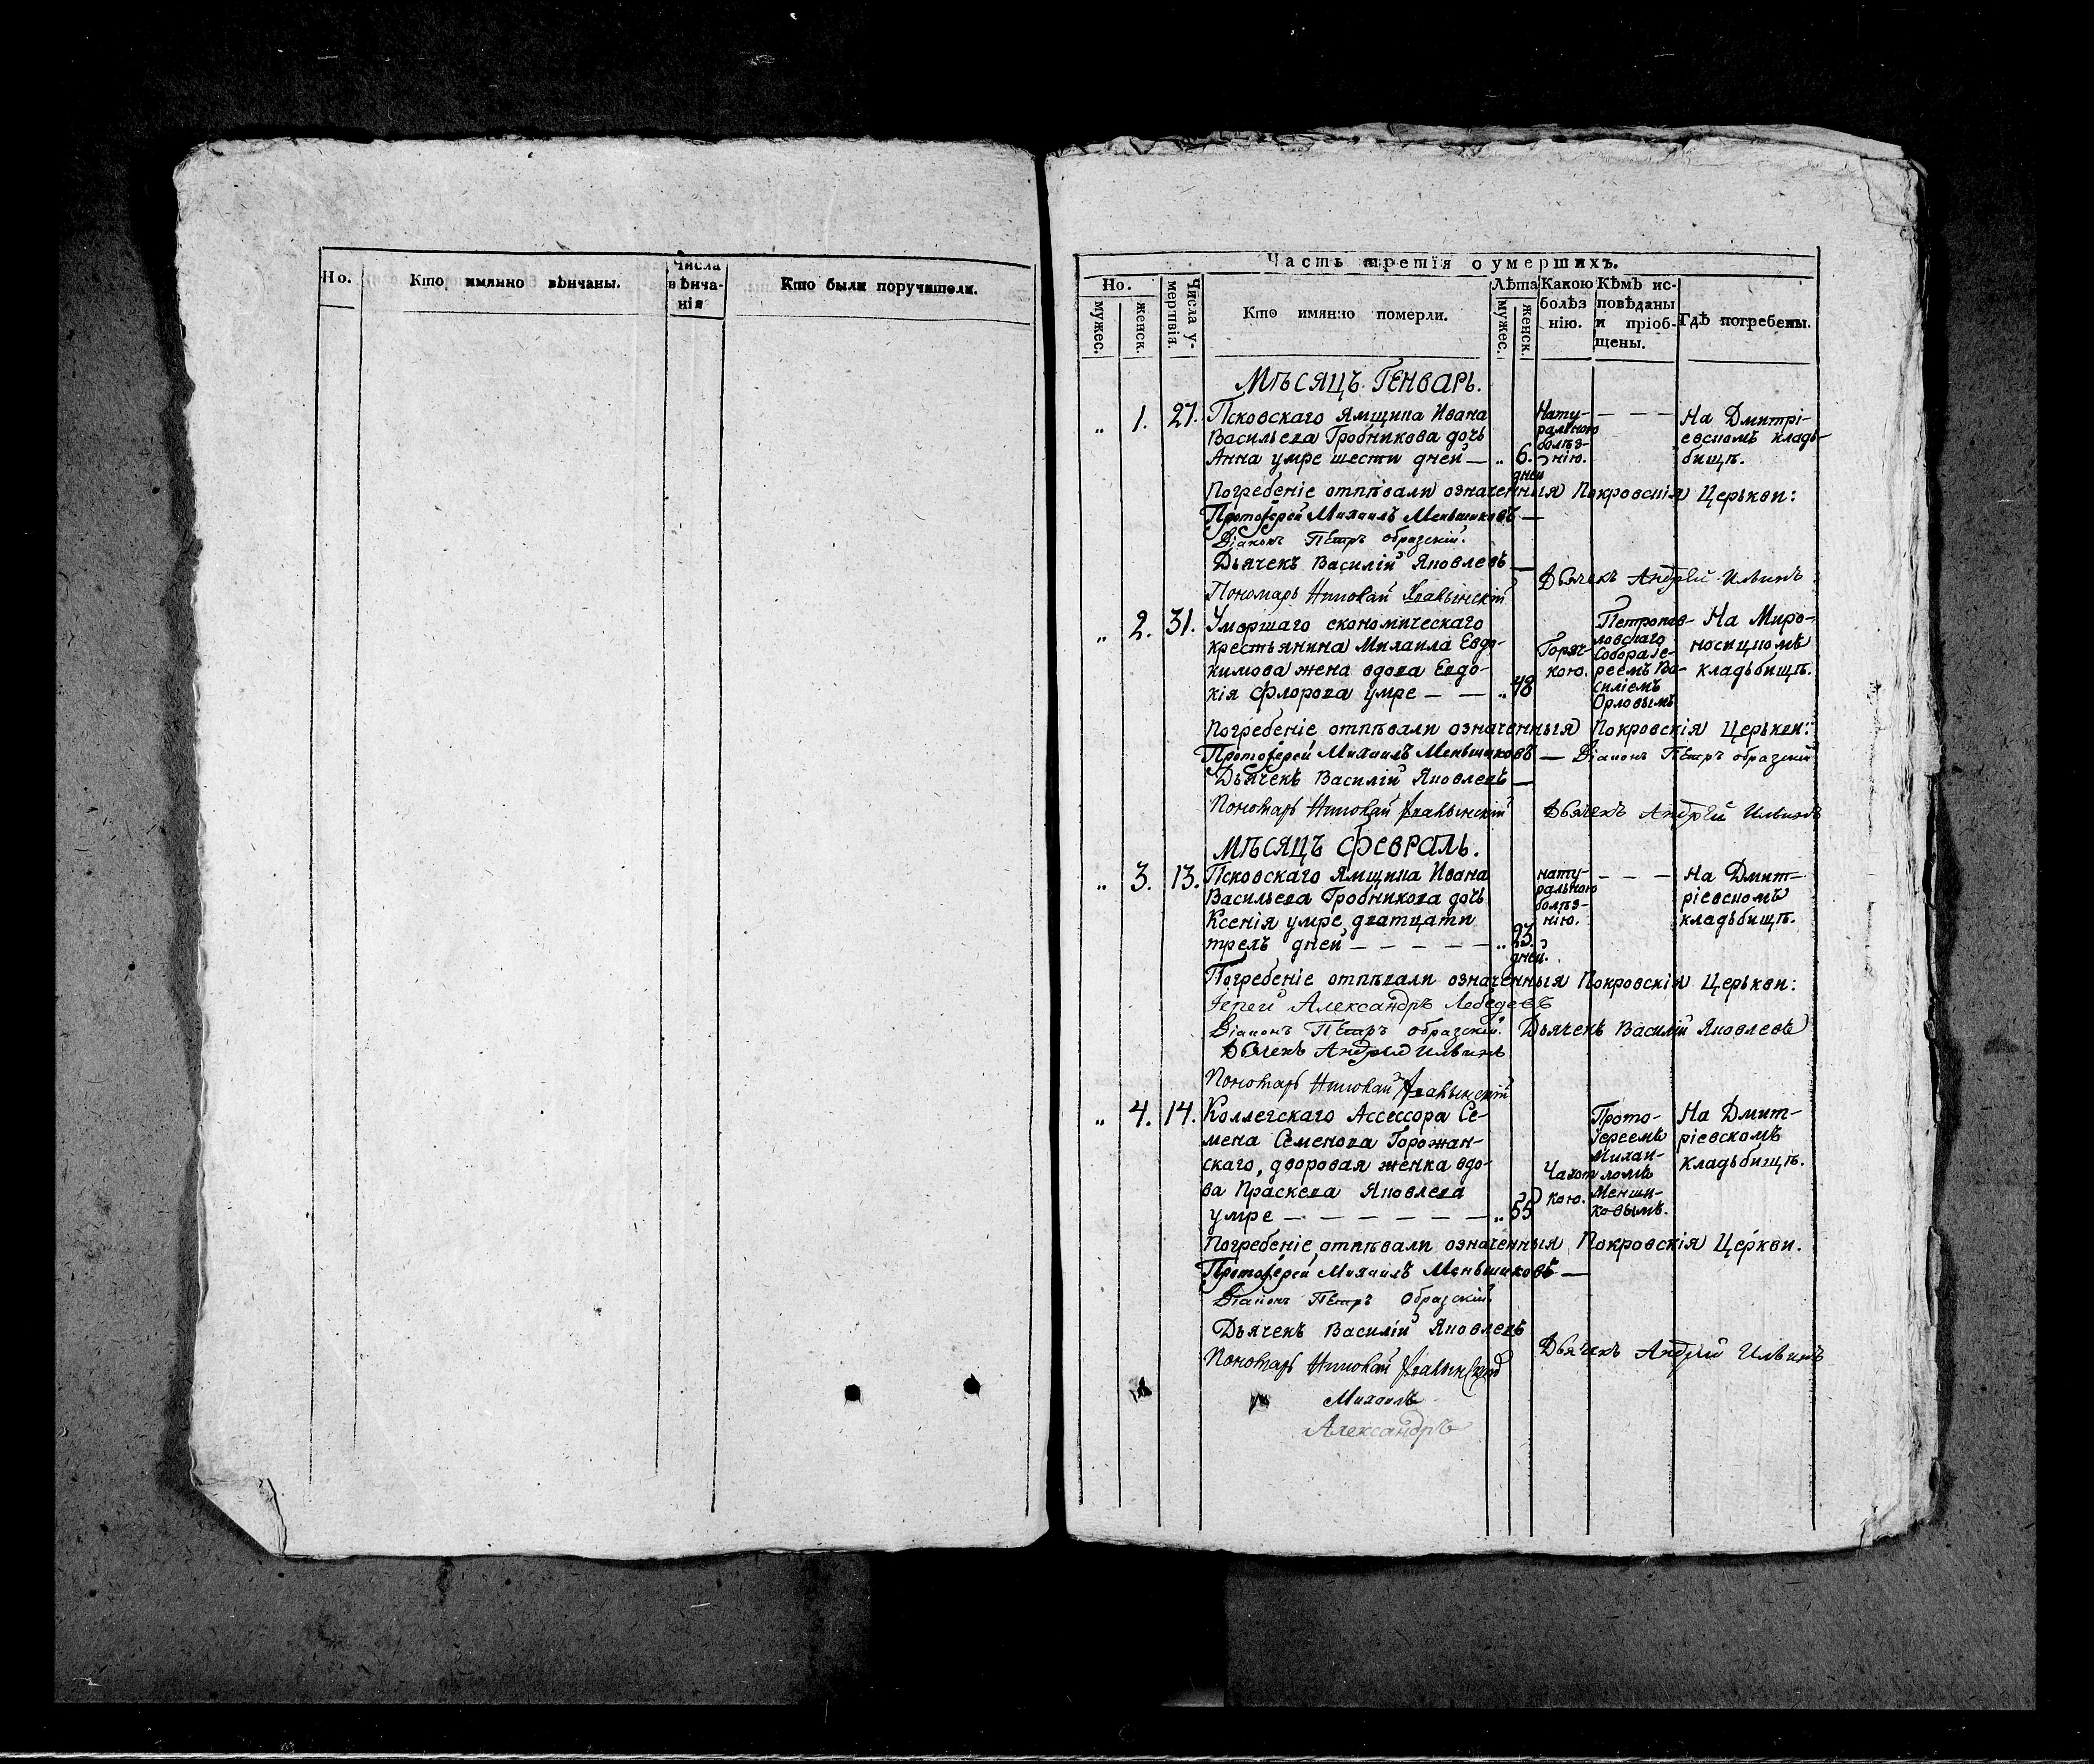 Но.
Кто имянно вѣнчаны.
Числа
вѣнча-
нія
Кто были поручители.
Часть третія о умершихъ.
Но.
мужес.
женск.
Числа у-
мертвія.
Кто имянно померли.
Лѣта
мужес.
женск.
Какою
болѣз
нію.
Кѣмъ ис-
повѣданы
и пріоб-
щены.
Гдѣ погребены.
Мѣсяцъ Генварь.
„ 1. 27. Псковскаго Ямщика Ивана
Васильева Гробникова дочь
Анна умре шести дней — „ 6.
дней
Нату-
ральною
болѣз-
нію.
— — —
На Дмитрі-
евскомъ кладь-
бищѣ.
Погребеніе отпѣвали означенныя Покровскія Церькви:
Протоіерей Михаилъ Меньшиковъ —
Діаконъ Петръ Образскій.
Дьячекъ Василій Яковлевъ —
Дьячекъ Андрей Ильинъ
Пономарь Николай
„ 2. 31. Умершаго економическаго
крестьянина Михаила Евдо-
кимова жена вдова Евдо-
кія Флорова умре — — „ 48
Горяч-
кою.
Петропав-
ловскаго
Собора Іе-
реемъ Ва-
силіемъ
Орловымъ
На Миро-
носицкомъ
кладьбищѣ.
Погребеніе отпѣвали означенныя Покровскія Церькви:
Протоіерей Михаилъ Меньшиковъ — Діаконъ Петръ Образскій
Дьячекъ Василій Яковлевъ —
Пономарь Николай
Дьячекъ Андрей Ильинъ
Мѣсяцъ Февраль.
„ 3. 13. Псковскаго Ямщика Ивана
Васильева Гробникова дочь
Ксенія умре дватцати
трехъ дней — — — — — „ 23.
дней.
нату-
ральною
болѣз-
нію.
— — —
На Дмит-
ріевскомъ
кладьбищѣ.
Погребеніе отпѣвали означенныя Покровскія Церькви:
Іерей Александръ Лебедевъ
Діаконъ Петръ Образскій. Дьячекъ Василій Яковлевъ
Дьячекъ Андрей Ильинъ
Пономарь Николай
„ 4. 14. Коллегскаго Ассессора Се-
мена Семенова Горожан-
скаго, дворовая женка вдо-
ва Праскева Яковлева
умре — — — — — — „ 55
Чахот
кою.
Прото-
іереемъ
Михаи-
ломъ
Менши-
ковымъ.
На Дмит-
ріевскомъ
кладьбищѣ.
Погребеніе отпѣвали означенныя Покровскія Церкви.
Протоіерей Михаилъ Меньшиковъ —
Діаконъ Петръ Образскій
Дьячекъ Василій Яковлевъ
Дьячекъ Андрей Ильинъ
Пономарь Николай
Михаилъ
Александръ